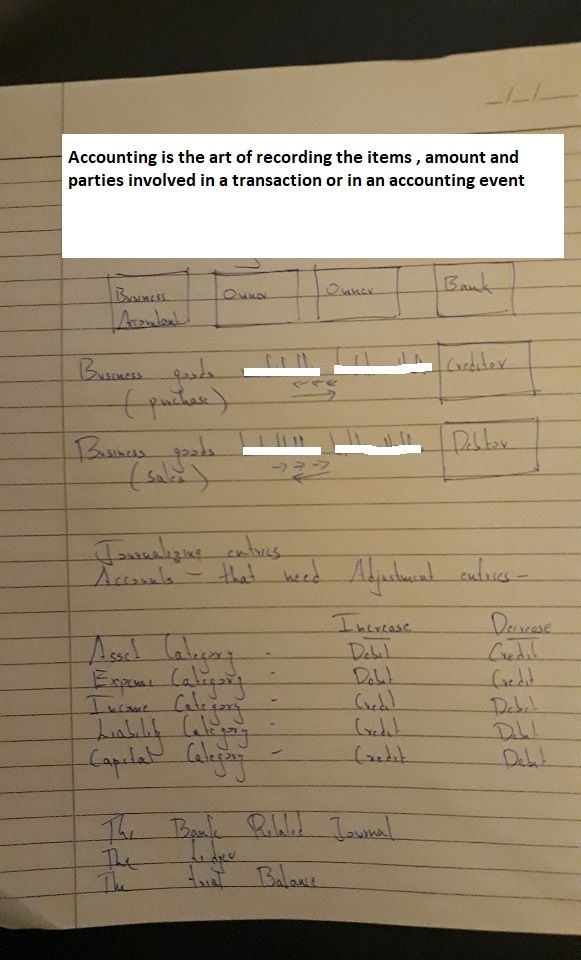 Accounting is the art of recording the items , amount and
parties involved in a transaction or in an accounting event
Business Owner Owner Bank
Accountant
Business goods Creditor
(purchase)
Business goods Debtor
(sales)
Journalizing entries
Accounts - that need Adjustment entries -
Increase Decrease
Asset Category - Debit Credit
Expense Category - Debit Credit
Income Category - Credit Debit
Liability Category - Credit Debit
Capital Category - Credit Debit
The Bank Related Journal
The Ledger
The trial Balance